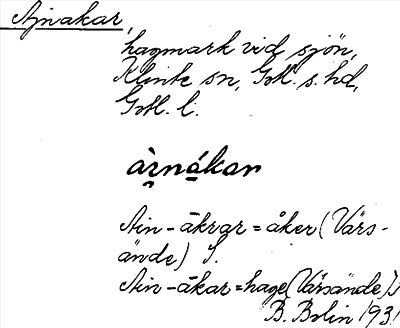 Ajnakar,
hagmark vid sjön,
Klinte sn, Gotl. s. hd,
Gotl. l.
àrnákar
Ain-åkrar = åker (Värs-
ände) S.
Ain-åkar = hage (Värsände) S
B. Bolin 193